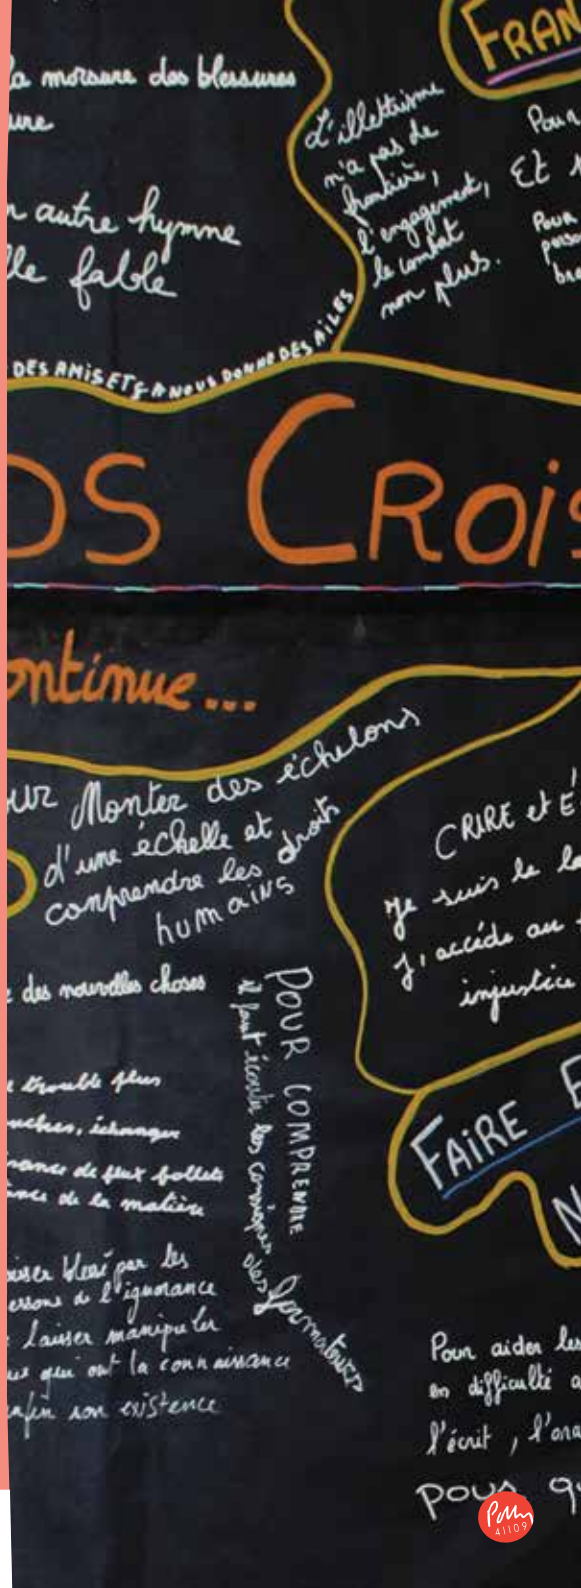 la morsure des blessures
ure
autre hymne
lle fable
DES AMIS ET ÇA NOUS DONNE DES AILES
L'illettrisme
n'a pas de
frontière,
l'engagement,
le combat
non plus.
FRAN
Pour
Et
Pour
OS CROIS
ontinue...
ur Monter des échelons
d'une échelle et
comprendre les droits
humains
des nouvelles choses
trouble plus
échanger
de feux follets
de la matière
blessé par les
de l'ignorance
laisser manipuler
qui ont la connaissance
enfin son existence
POUR COMPRENDRE
il faut écouter les consignes des formateurs
CRIRE et É
Je suis le
J'accède au
injustice
FAIRE E
N
Pour aider les
en difficulté a
l'écrit, l'ora
pour qu
41109